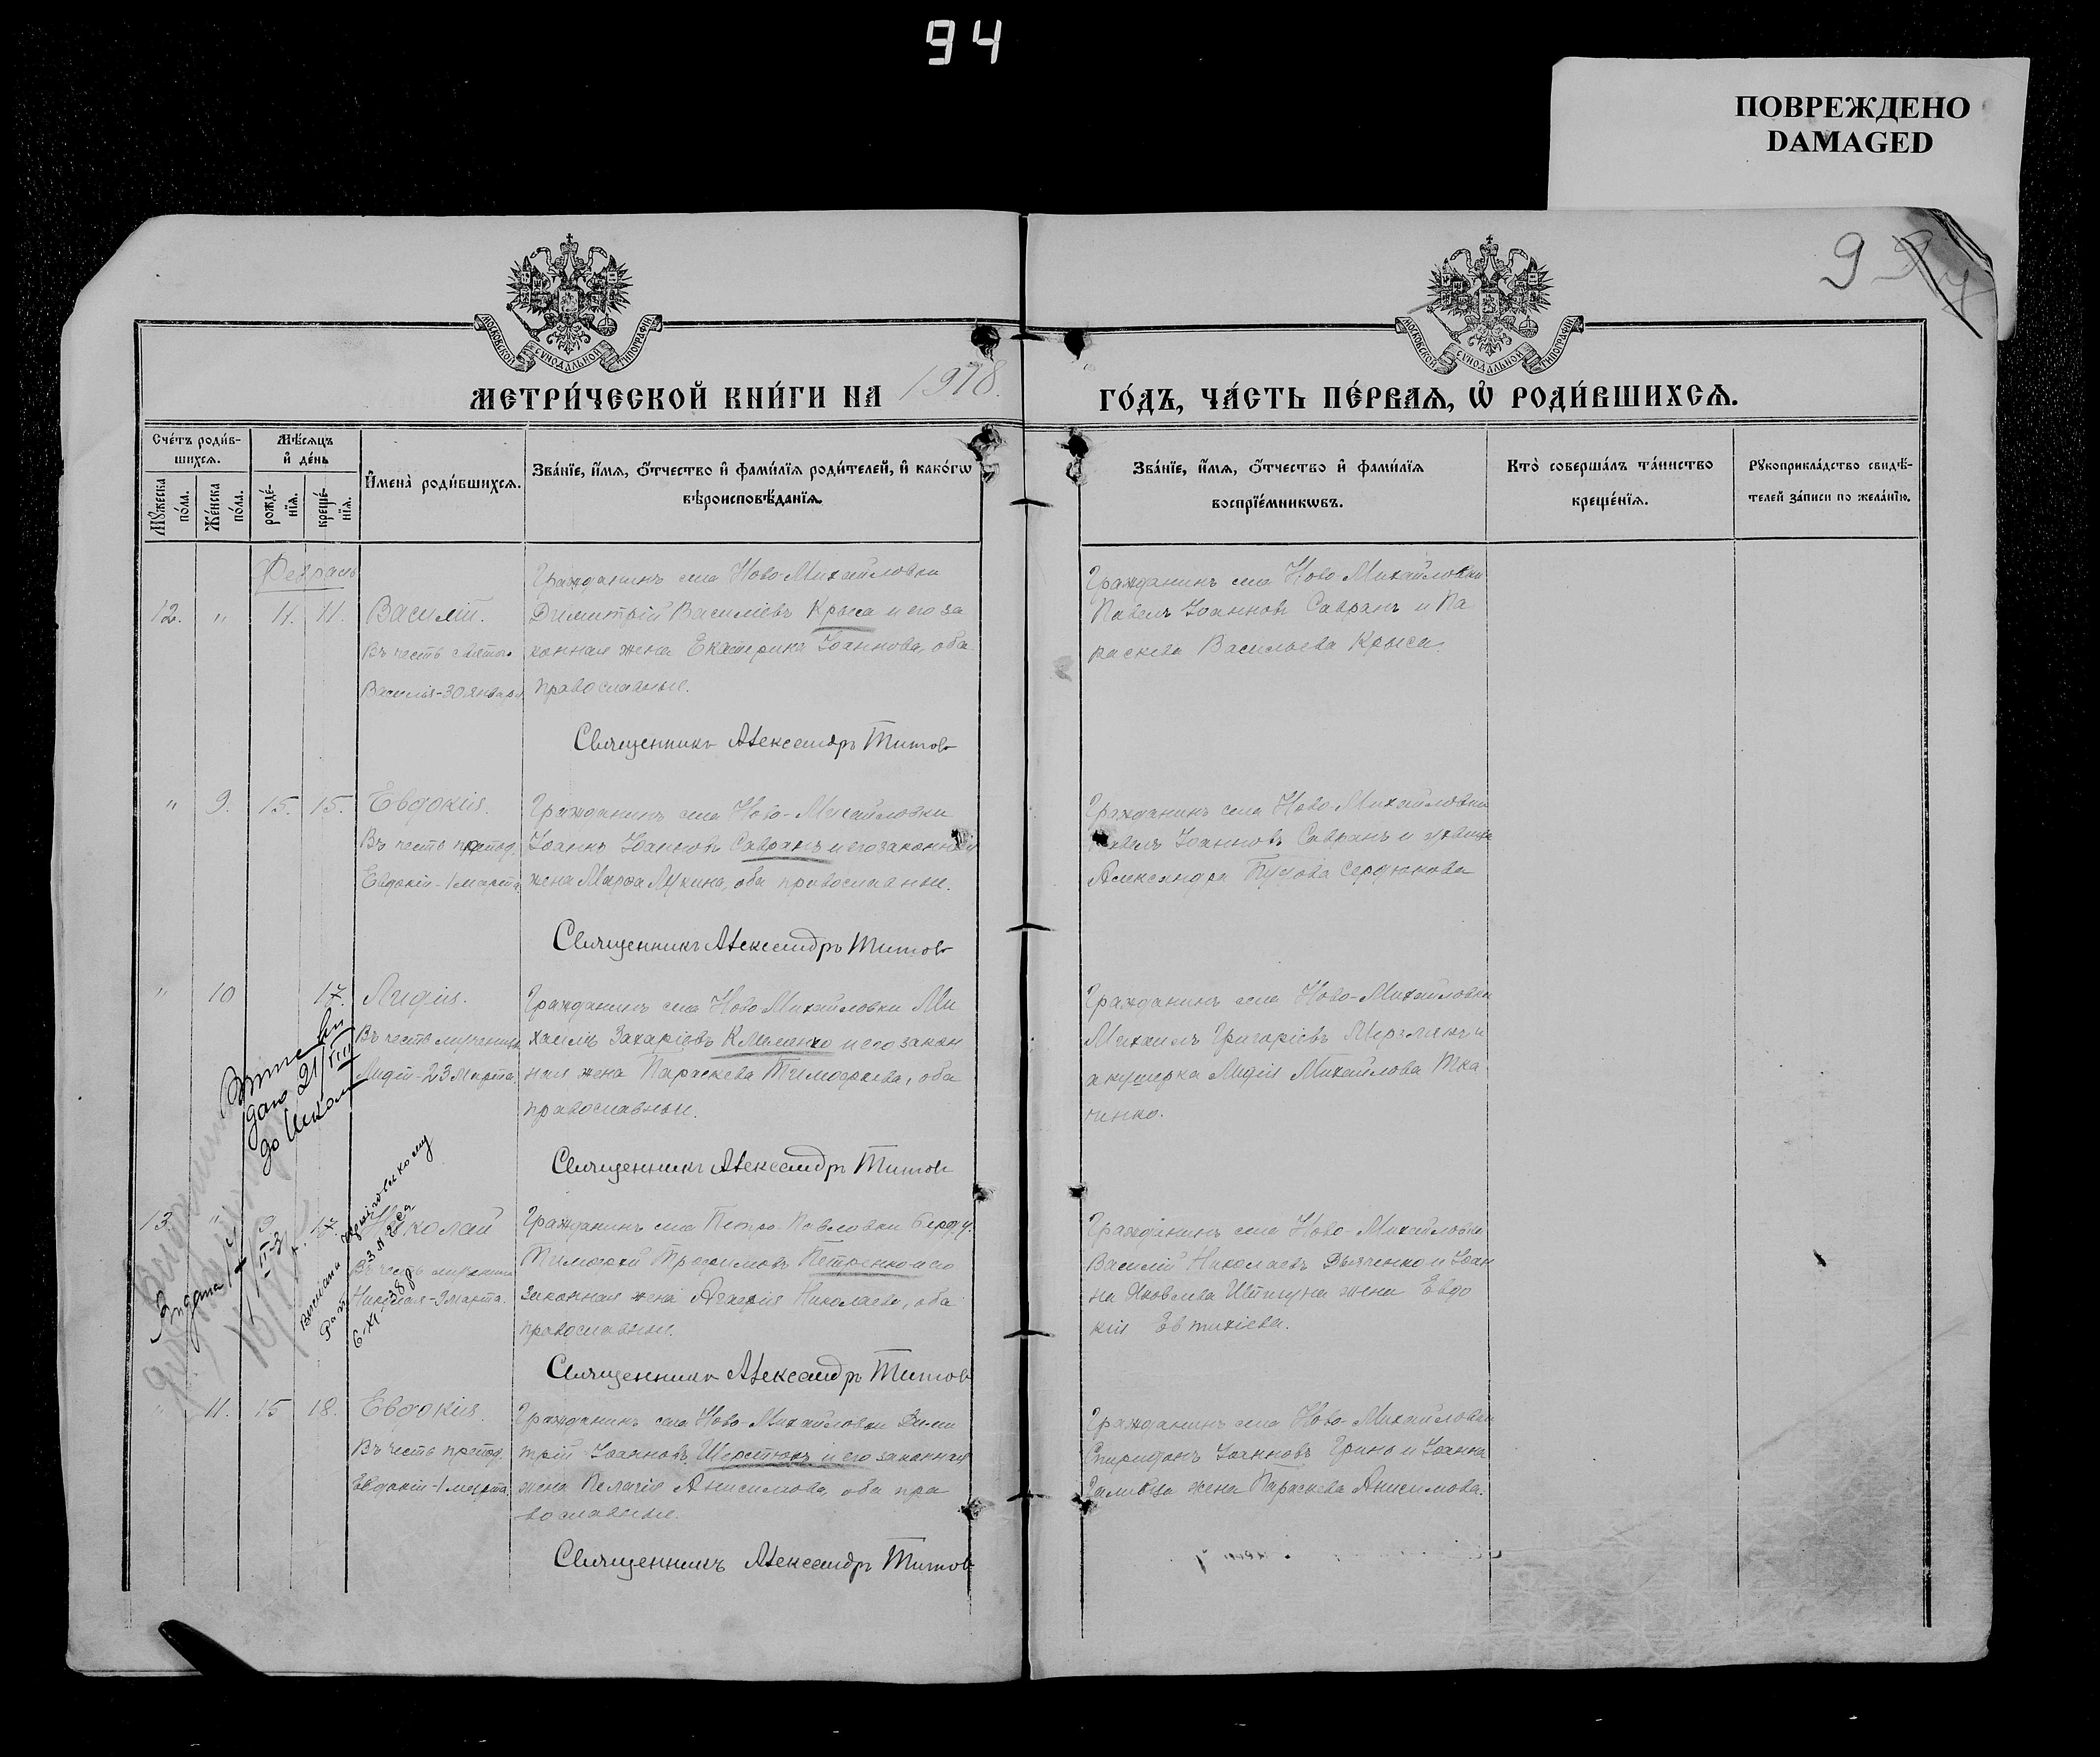 94
ПОВРЕЖДЕНО
DAMAGED
9
МОСКОВСКОЙ СѴНОДАЛЬНОЙ ТИПОГРАФІИ
МОСКОВСКОЙ СѴНОДАЛЬНОЙ ТИПОГРАФІИ
МЕТРИ́ЧЕСКОЙ КНИ́ГИ НА 1918.
ГО́ДЪ, ЧА́СТЬ ПЕ́РВАЯ, Ѡ РОДИ́ВШИХСЯ.
Сче́тъ роди́в-
шихся.
Мѣсяцъ
и де́нь
Мꙋжеска по́ла.
Же́нска по́ла.
рожде́-
нїя.
креще́-
нїя.
Имена̀ роди́вшихся.
Зва́нїе, и́мя, о́тчество и фами́лїя роди́телей, и како́гѡ
вѣроисповѣ́данїя.
Зва́нїе, и́мя, о́тчество и фами́лїя
воспрїе́мникѡвъ.
Кто̀ соверша́лъ та́инство
креще́нїя.
Рꙋкоприкла́дство свидѣ́-
телей за́писи по жела́нїю.
Февраль
12. " 11. 11. Василій.
Въ честь
Василія-30 января
Гражданинъ села Ново-Михайловки
Димитрій Василіевъ Крыса и его за
конная жена Екатерина Іоаннова, оба
православные.
Священникъ Александръ Титовъ
Гражданинъ села Ново-Михайловки
Павелъ Іоанновъ Савранъ и Па
раскева Васильева Крыса.
" 9. 15. 15. Евдокія.
Въ честь препод.
Евдокіи-1 марта
Гражданинъ села Ново-Михайловки
Іоаннъ Іоанновъ Савранъ и его законная
жена Марфа Лукина, оба православные.
Священникъ Александръ Титовъ
Гражданинъ села Ново-Михайловки
Павелъ Іоанновъ Савранъ и
Александра Сердюкова
" 10 17. Лидія.
Въ честь мученицы
Лидіи-23 Марта.
Гражданинъ села Ново-Михайловки Ми
хаилъ Захаріевъ и его закон
ная жена Параскева Тимофеева, оба
православные.
Священникъ Александръ Титовъ
Гражданинъ села Ново-Михайловки
Михаилъ Григоріевъ и
акушерка Лидія Михайлова Тка
ченко.
дано 21/VIII
13. " 9. 17. Николай
Въ честь мученика
Николая-9 марта.
Гражданинъ села Петро-Павловки Бердян.
Тимофей Трофимовъ Петренко и его
законная жена Агафія Николаева, оба
православные.
Священникъ Александръ Титовъ
Гражданинъ села Ново-Михайловки
Василій Николаевъ Дьяченко и Іоан
на Яковлева жена Евдо
кія Евтихіева.
" 11. 15 18. Евдокія.
Въ честь препод.
Евдокіи-1 марта.
Гражданинъ села Ново-Михайловки Дими
трій Іоанновъ Шерстюкъ и его законная
жена Пелагія Анисимова, оба пра
вославные.
Священникъ Александръ Титовъ
Гражданинъ села Ново-Михайловки
Спиридонъ Іоанновъ Гринь и Іоанна
жена Параскева Анисимова.